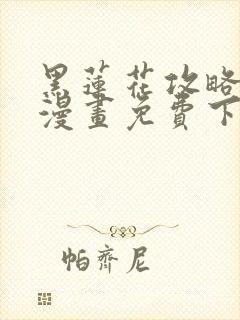 黑蓮花攻略
漫畫免費下
帕齊尼